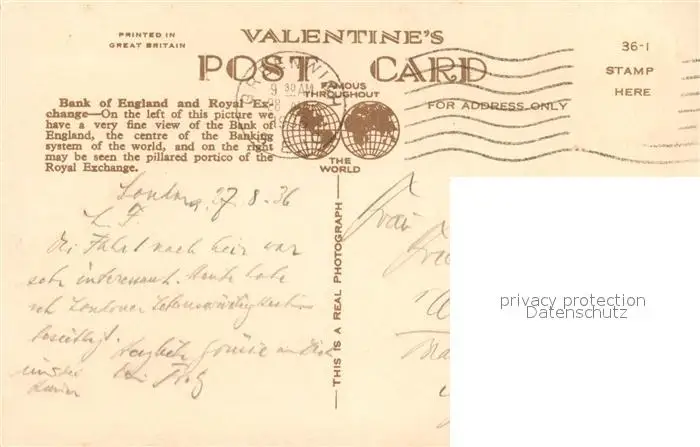 PRINTED IN
GREAT BRITAIN
VALENTINE'S
POST CARD
36-1
STAMP
HERE
GREENWICH
9 30 AM
28
FAMOUS
THROUGHOUT
THE
WORLD
FOR ADDRESS ONLY
Bank of England and Royal Ex-
change—On the left of this picture we
have a very fine view of the Bank of
England, the centre of the Banking
system of the world, and on the right
may be seen the pillared portico of the
Royal Exchange.
London, 27.8.36
L. F.
Die Fahrt nach hier war
sehr interessant. Heute habe
ich Londoner Sehenswürdigkeiten
besichtigt.
Herzliche Grüsse an Dich
und die
Dein
THIS IS A REAL PHOTOGRAPH
Frau
privacy protection
Datenschutz